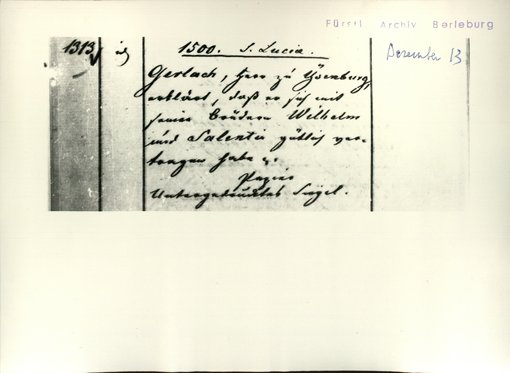 Fürstl. Archiv Berleburg
1313
1500. S. Lucia.
Dezember 13
Gerlach, Herr zu Ysenburg,
erklärt, daß er sich mit
seinen Brüdern Wilhelm
und Salentin gütlich ver-
tragen habe
Papier
Untergedrucktes Siegel.